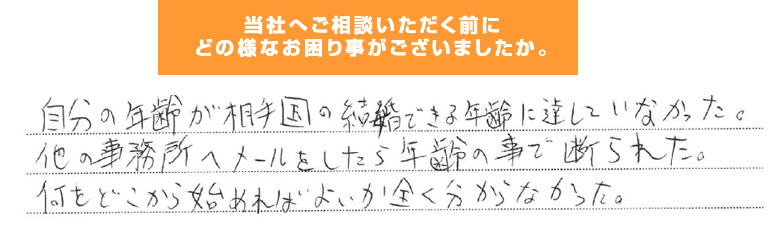 当社へご相談いただく前に
どの様なお困り事がございましたか。
自分の年齢が相手国の結婚できる年齢に達していなかった。
他の事務所へメールをしたら年齢の事で断られた。
何をどこから始めればよいか全く分からなかった。